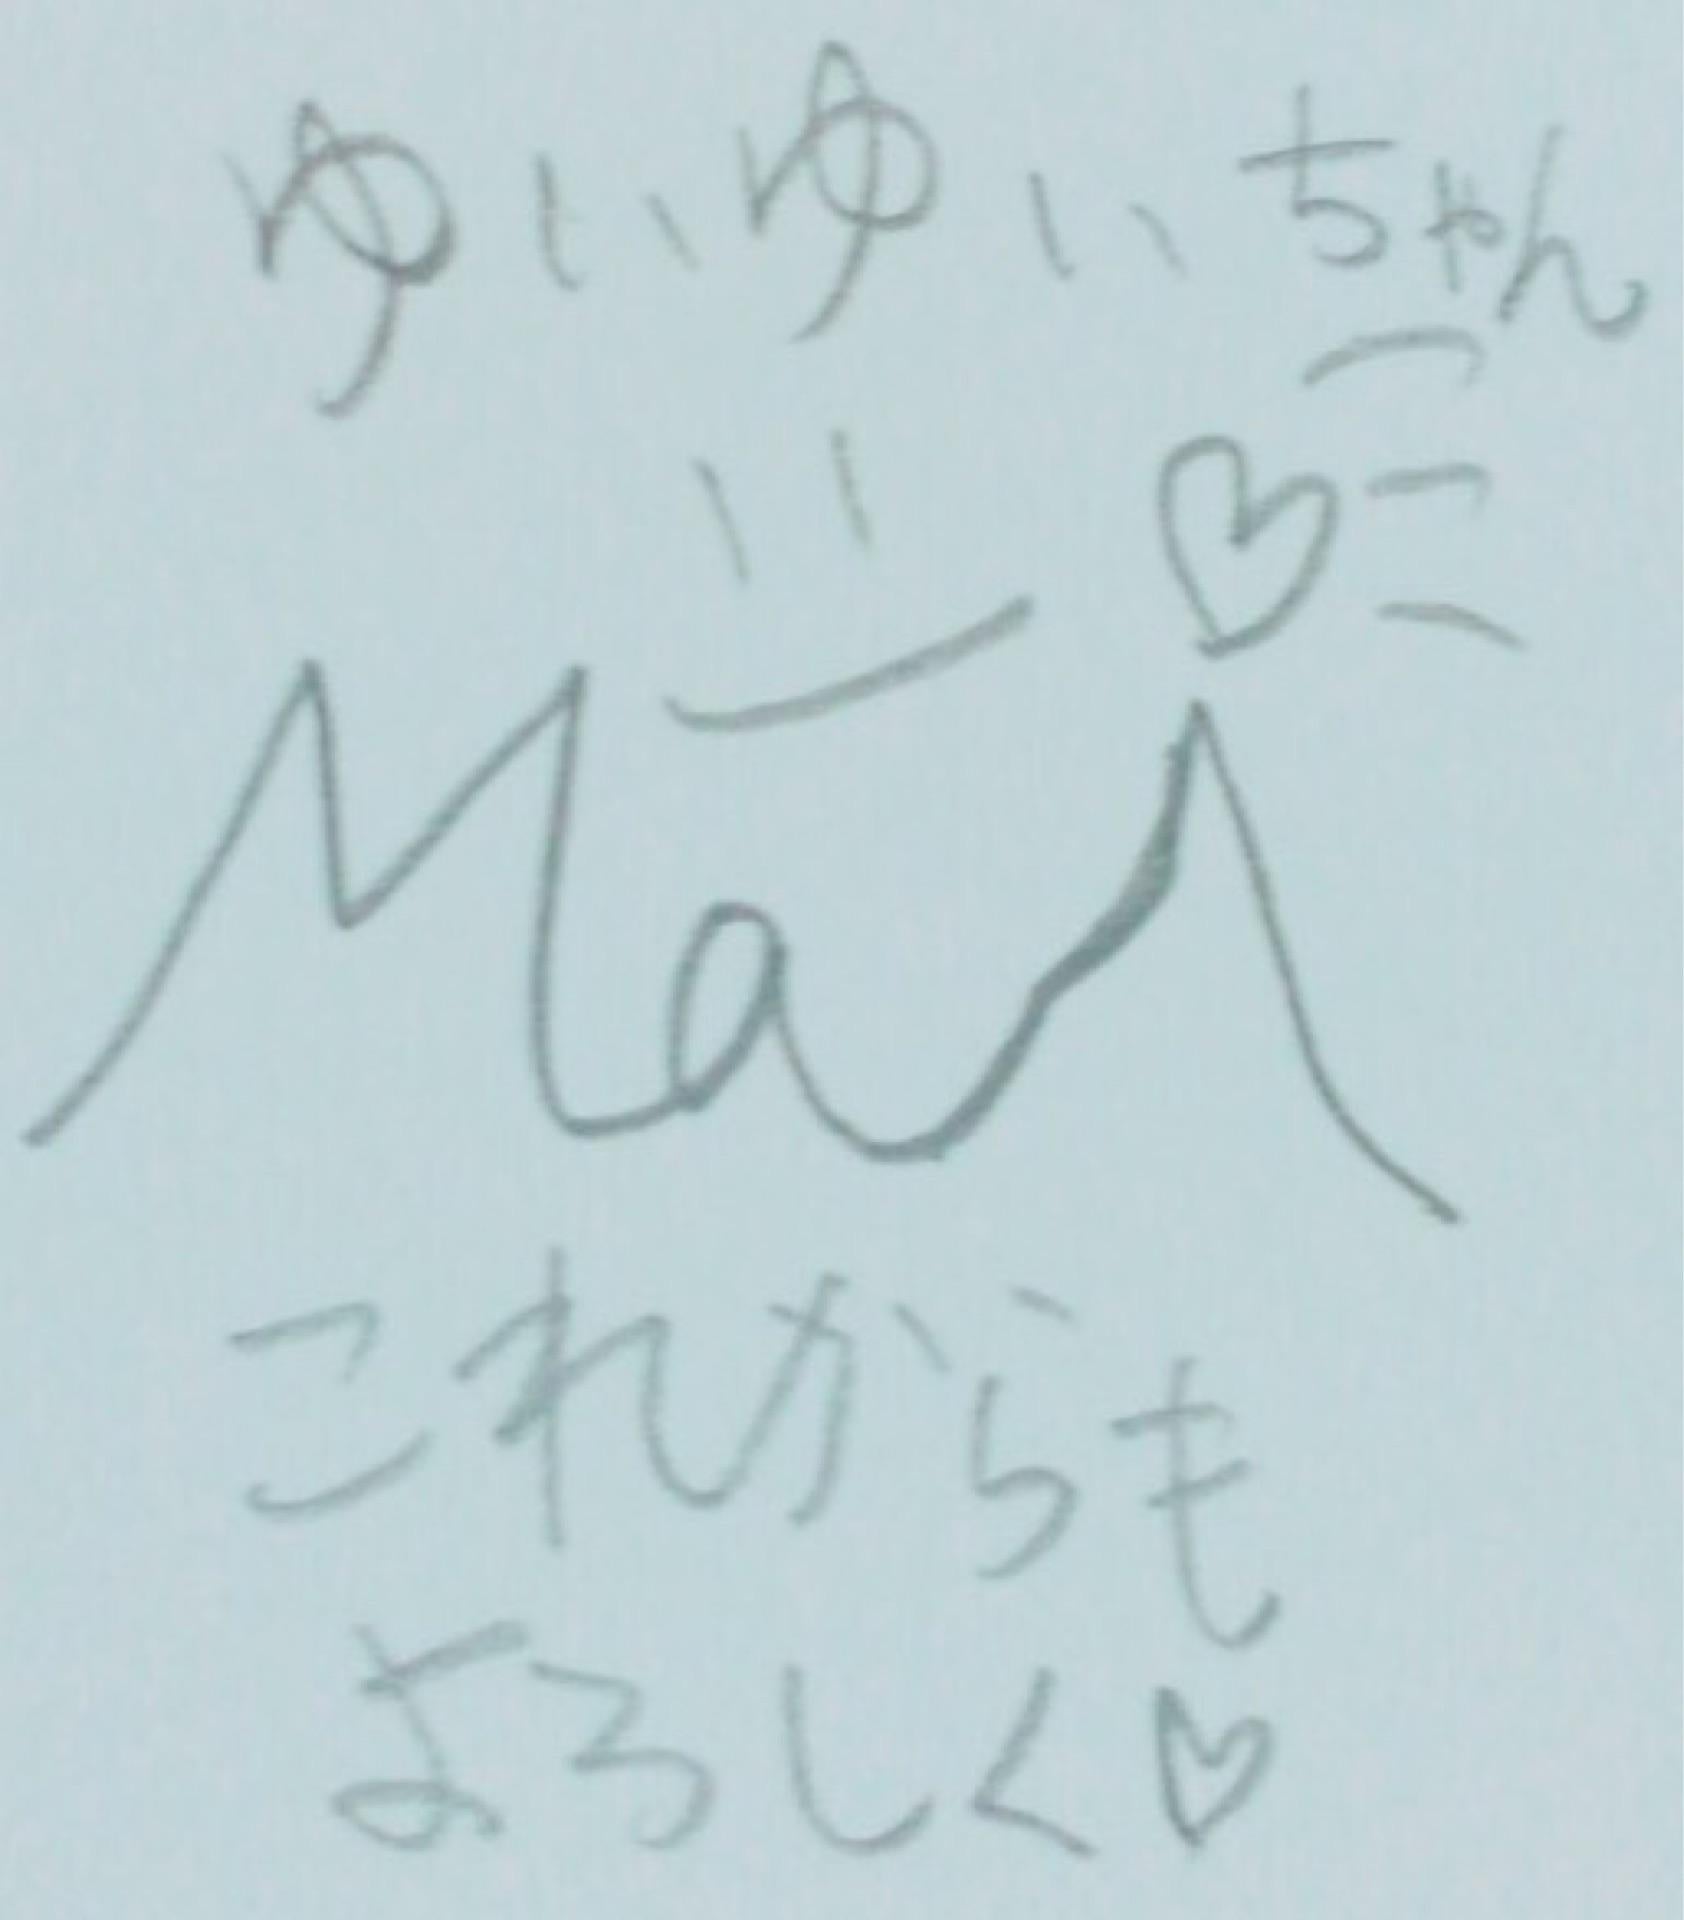 ゆいゆいちゃん
Mai
これからも
よろしく♡